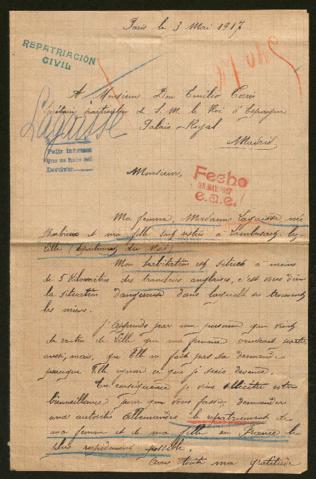 Paris le 3 Mai 1917
REPATRIACIÓN
CIVIL
A Monsieur Don Emilio
de S. M. le Roi d'Espagne
Palais-Royal
Madrid
Lagaisse
Monsieur,
Fecho
Ma femme, Madame née
et ma fille sont restées à Lambersart lez
Lille (département du Nord)
Mon habitation est située à moins
de 5 Kilomètres des tranchées anglaises, c'est vous dire
la situation dangereuse dans laquelle se trouvent
les miens.
J'apprends par une personne qui vient
de sortir de Lille que ma femme voudrait partir
aussi, mais que Elle ne fait pas sa demande
parceque Elle ignore ce que je suis devenu.
En conséquence je viens solliciter votre
bienveillance pour que vous fassiez demander
aux autorités Allemandes le rapatriement de
ma femme et de ma fille en France le
plus rapidement possible.
Avec toute ma gratitude